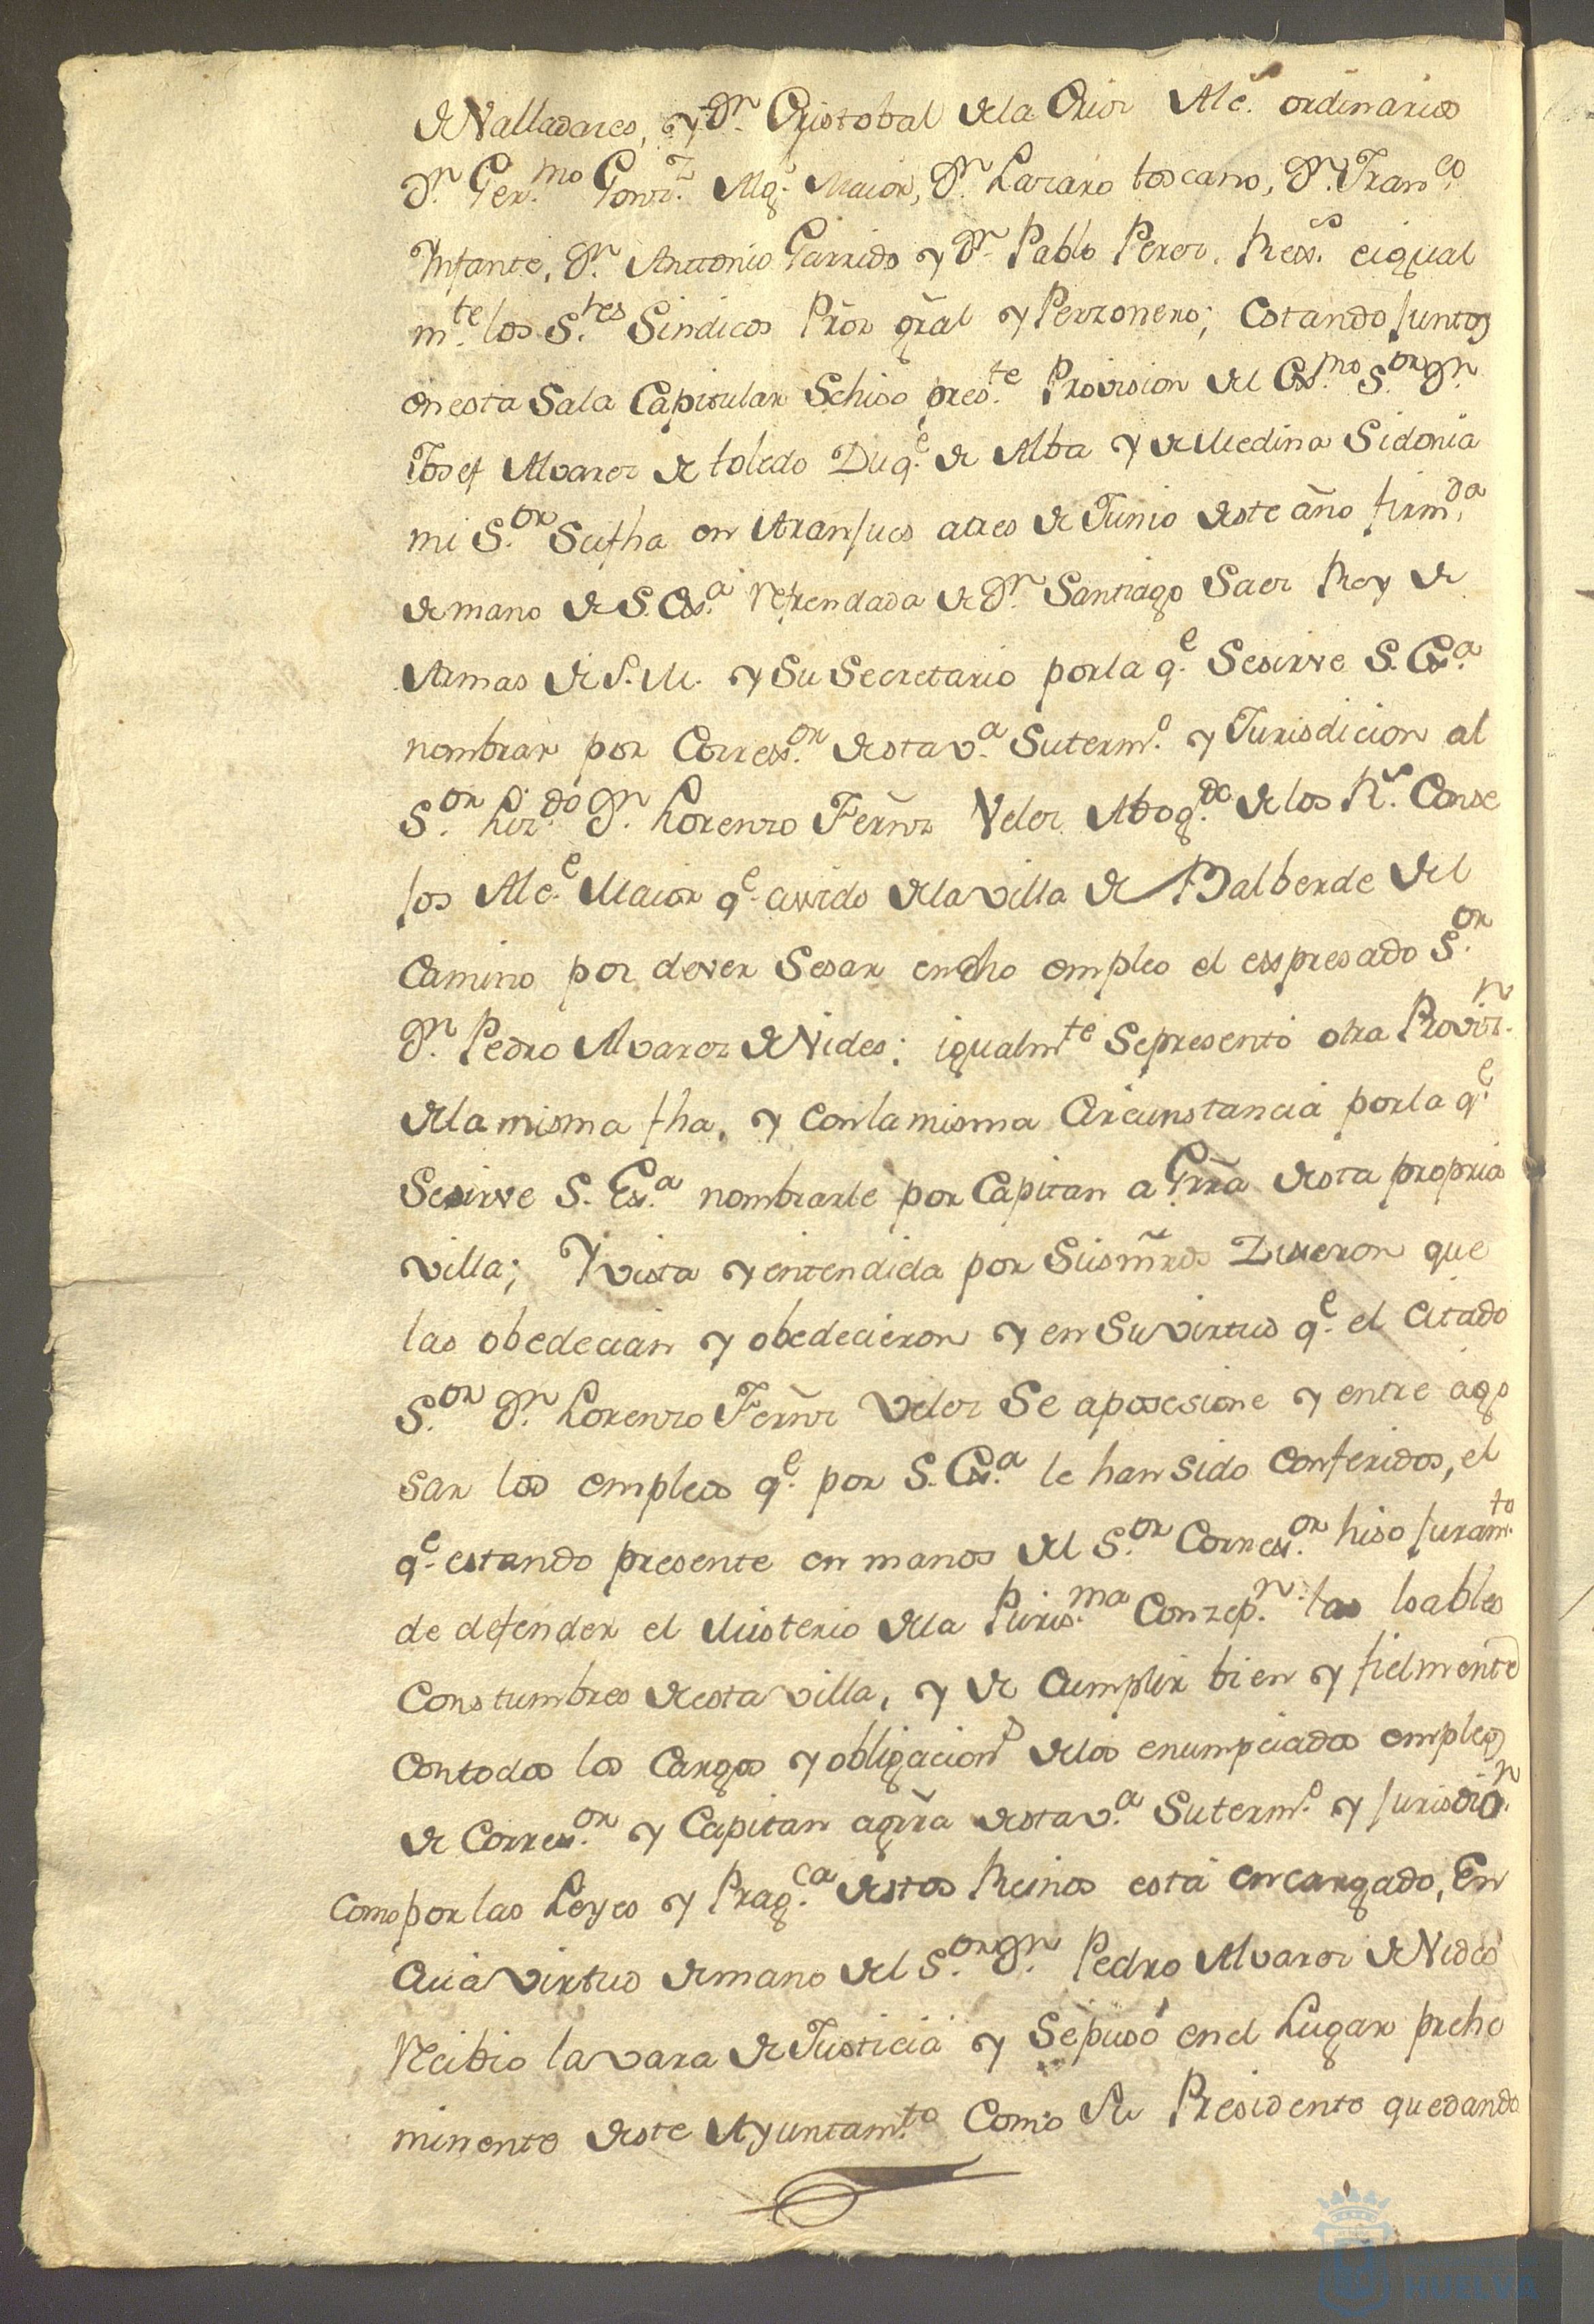 de Valladares, y Dn. Cristobal de la Orior Alc.s ordinarios
Dn. Ger.mo Gonz.z Alg.l Maior, Dn. Lazaro toscano, Dn. Fran.co
Infante, Dn. Antonio Garrido y Dn. Pablo Perez, Rexs.es eigual
m.te los S.res Sindicos Prõr gral y Perzonero; Estando juntos
en esta Sala Capitular Sehiso pres.te Provision del Ex.mo S.or Dn.
Josef Alvarez de toledo Duq.e de Alba y de Medina Sidonia
mi S.or Su fha en Aranjues a tres de Junio deste año firm.da
de mano de S. Ex.a refrendada de Dn. Santiago Saez Rey de
Armas de S. M. y Su Secretario porla q.e Sesirve S. Ex.a
nombrar por Correx.or desta v.a Suterm.o y Jurisdicion al
S.or Liz.do Dn. Lorenzo Fern̄z Velez Abog.do delos R.s Conse
jos Alc.e Maior q.e asido dela villa de Balberde del
Camino por dever Sesar en dho empleo el esspresado S.or
Dn. Pedro Alvarez de Nides; igualm.te Sepresentó otra Provis.n
dela misma fha, y conla misma Circunstancia porla q.e
Sesirve S. Ex.a nombrarle por Capitan a Grr̃a desta propria
villa; Y vista y entendida por Sus m̃rds Dixeron que
las obedecian y obedecieron y en Su virtud q.e el Citado
S.or Dn. Lorenzo Fern̄z Velez Se aposesione y entre ágo
sar los empleos q.e por S. Ex.a le han Sido Conferidos, el
q.e estando presente en manos del S.or Correx.or hiso juram.to
de defender el Misterio dela Puris.ma Conzep.n las loables
Constumbres desta villa, y de Cumplir bien y fielmente
Contodos los Cargos y obligacion.s delos enumpciados empleos
de Correx.or y Capitan agrr̃a desta v.a Suterm.o y jurisdiò.n
Como por las Leyes y Prag.ca destos Reinos está encargado, En
Cuia virtud demano del S.or Dn. Pedro Alvarez de Nides
recibio la vara de Justicia y Sepusó en el Lugar prehe
minente deste Ayuntam.to Como Su Presidente quedando
HUELVA